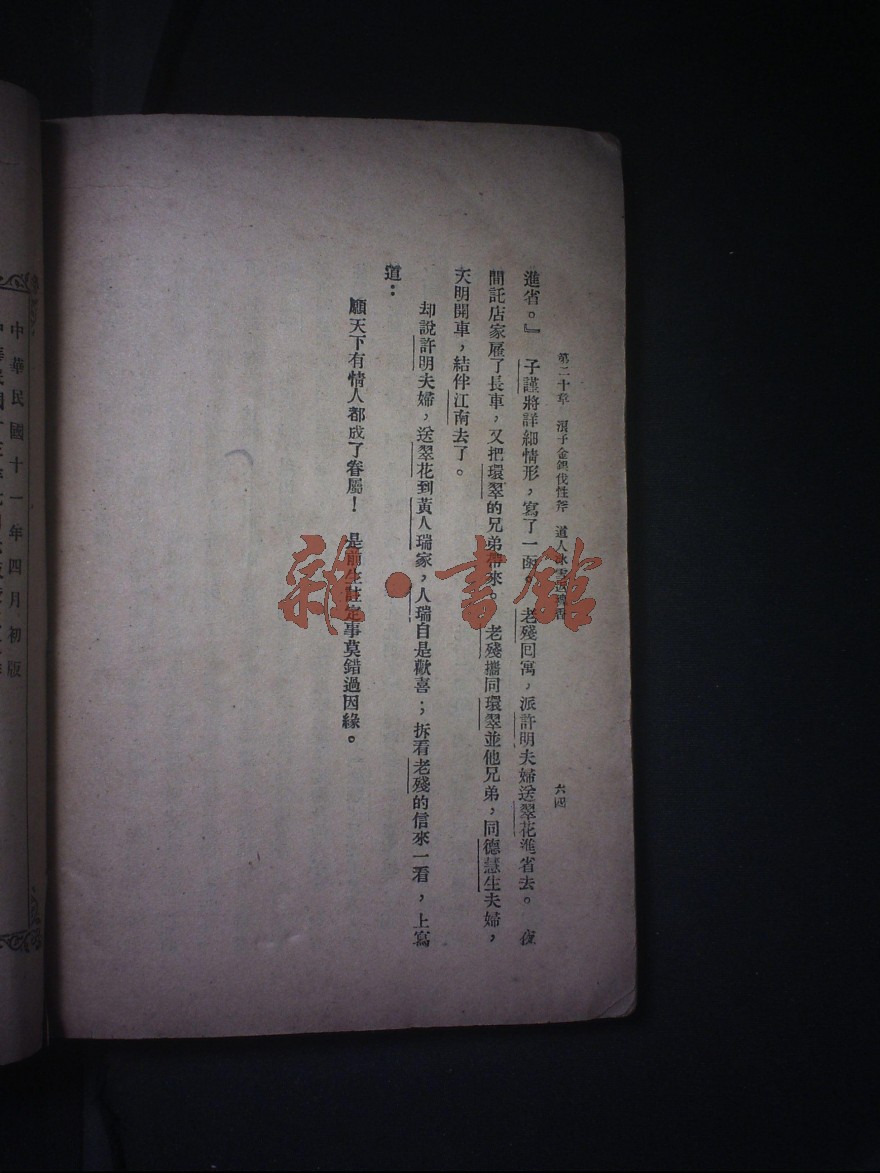 第二十章　浪子金銀伐性斧　道人冰雪返魂香
六四
進省。』　子謹將詳細情形，寫了一函。　老殘回寓，派許明夫婦送翠花進省去。　夜
間託店家雇了長車，又把環翠的兄弟帶來。　老殘攜同環翠並他兄弟，同德慧生夫婦，
天明開車，結伴江南去了。
却說許明夫婦，送翠花到黃人瑞家，人瑞自是歡喜；拆看老殘的信來一看，上寫
道：
願天下有情人都成了眷屬！　是前生註定事莫錯過因緣。
雜·書館
中華民國十一年四月初版